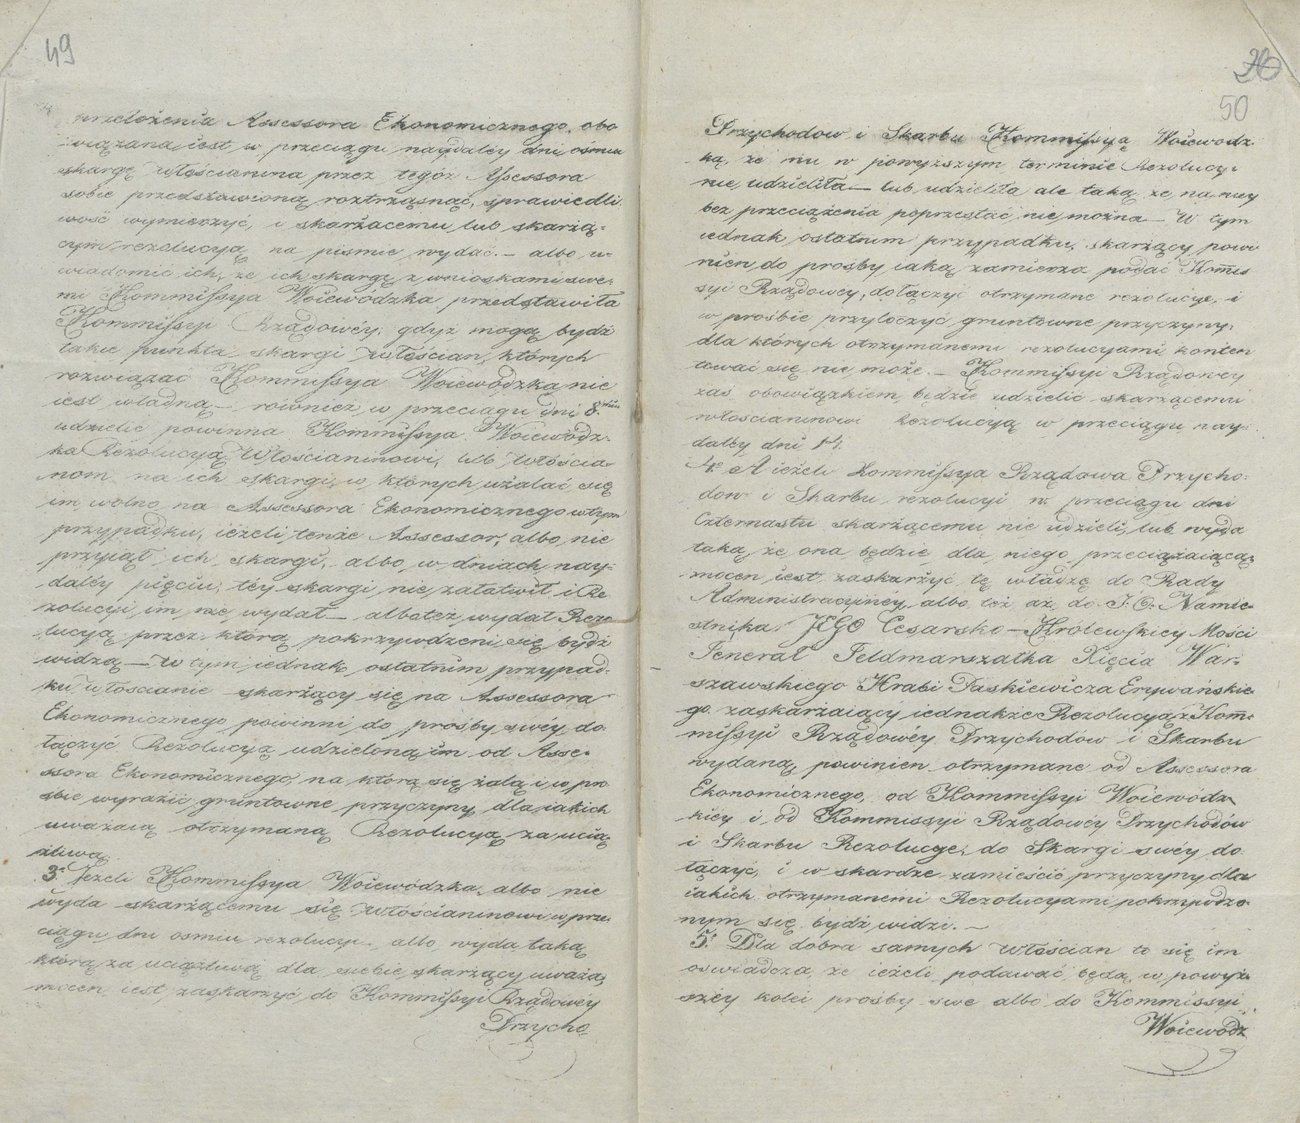 49
przełożenia Assessora Ekonomicznego, obo
wiązana iest w przeciągu naydaley dni ośmiu
skargę Włościanina przez tegoż Assessora
sobie przedstawioną roztrząsnąć, sprawiedli
wość wymierzyć, i skarżącemu lub skarżą-
cym rezolucyą na piśmie wydać. — albo u-
wiadomić ich, że ich skargę z wnioskami swe-
mi Kommissya Woiewódzka przedstawiła
Kommissyi Rządowéy; gdyż mogą bydź
takie punkta skargi włościan, których
rozwiązać Kommissya Woiewódzka nie
iest władną — również w przeciągu dni 8miu
udzielić powinna Kommissya Woiewódz-
ka Rezolucyą Włościaninowi, lub Włościa-
nom na ich skargi, w których użalać się
im wolno na Assessora Ekonomicznego w tym
przypadku, ieżeli tenże Assessor, albo nie
przyiął ich skargi, albo w dniach nay-
daley pięciu, tey skargi nie załatwił i Re
zolucyi im nie wydał — albo też wydał Rezo
lucyą przez którą pokrzywdzeni się bydź
widzą — w tym iednak ostatnim przypad-
ku włościanie skarżący się na Assessora
Ekonomicznego powinni do prośby swéy do
łączyć Rezolucyą udzieloną im od Asse-
ssora Ekonomicznego, na którą się żalą i w pro
śbie wyrazić gruntowne przyczyny dla iakich
uważaią otrzymaną Rezolucyą za ucią
żliwą.
3. Jeżeli Kommissya Woiewódzka, albo nie
wyda skarżącemu się włościaninowi w prze-
ciągu dni ośmiu rezolucyi, albo wyda taką
którą za uciążliwą dla siebie skarżący uważa,
mocen iest zaskarżyć do Kommissyi Rządowey
Przycho
50
Przychodow i Skarbu Kommissyą Woiewodz-
ką, że mu w powyższym terminie Rezolucy-
nie udzieliła — lub udzieliła ale taką, że na niey
bez przeciążenia poprzestać nie można — W tym
iednak ostatnim przypadku, skarżący powi
nien do prośby iaką zamierza podać Kom̄is
syi Rządowey, dołączyć otrzymane rezolucye, i
w prośbie przytoczyć gruntowne przyczyny,
dla których otrzymanemi rezolucyami konten
tować się nie może. — Kommissyi Rządowey
zaś obowiązkiem będzie udzielić skarżącemu
włościaninowi Rezolucyą w przeciągu nay-
daley dni 14.
4. A ieżeli Kommissya Rządowa Przycho-
dow i Skarbu rezolucyi w przeciągu dni
Czternastu skarżącemu nie udzieli, lub wyda
taką, że ona będzie dla niego przeciążaiącą,
mocen iest zaskarżyć tę władzę do Rady
Administracyinéy albo też aż do J. O. Namie-
stnika JEGO Cesarsko — Królewskiey Mości
Jenerał Feldmarszałka Xięcia War-
szawskiego Hrabi Paskiewicza Erywańskie
go. zaskarżaiący iednakże Rezolucyą z Kom̄-
missyi Rządowey Przychodow i Skarbu
wydaną, powinien otrzymane od Assessora
Ekonomicznego, od Kommissyi Woiewódz-
kiéy i od Kommissyi Rządowéy Przychodów
i Skarbu Rezolucye, do Skargi swéy do
łączyć, i w skardze zamieścić przyczyny dla
iakich otrzymanemi Rezolucyami pokrzywdzo
nym się bydź widzi. —
5. Dla dobra samych włościan to się im
oświadcza, że ieżeli podawać będą w powyż-
széy kolei prośby swe albo do Kommissyi
Woiewódz